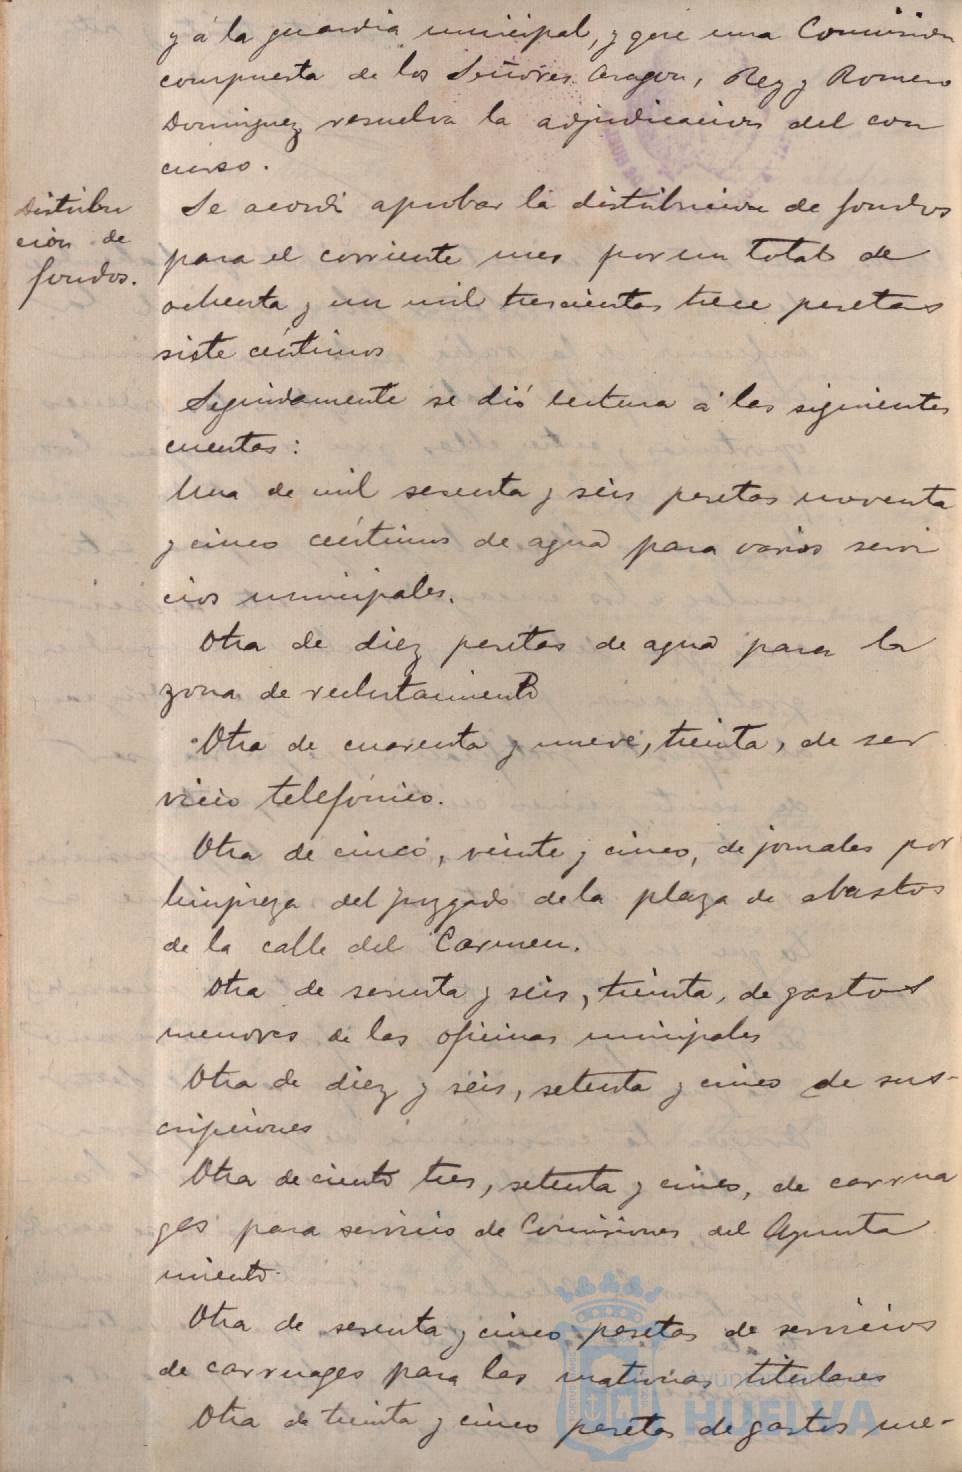 y á la guardia municipal, y que una Comision
compuesta de los Señores Aragon, Rey y Romero
Dominguez resuelva la adjudicacion del con
curso.
Distribu
cion de
fondos.
Se acordó aprobar la distribucion de fondos
para el corriente mes por un total de
ochenta y un mil trescientas trece pesetas
siete céntimos
Seguidamente se dió lectura á las siguientes
cuentas:
Una de mil sesenta y seis pesetas noventa
y cinco céntimos de agua para varios servi
cios municipales.
Otra de diez pesetas de agua para la
zona de reclutamiento
Otra de cuarenta y nueve, treinta, de ser
vicio telefónico.
Otra de cinco, veinte y cinco, de jornales por
limpieza del juzgado de la plaza de abastos
de la calle del Carmen.
Otra de sesenta y seis, treinta, de gastos
menores de las oficinas municipales
Otra de diez y seis, setenta y cinco de sus-
cripciones
Otra de ciento tres, setenta y cinco, de carrua
ges para servicio de Comisiones del Ayunta
miento.
Otra de sesenta y cinco pesetas de servicios
de carruages para las matronas titulares
Otra de treinta y cinco pesetas de gastos me-
HUELVA